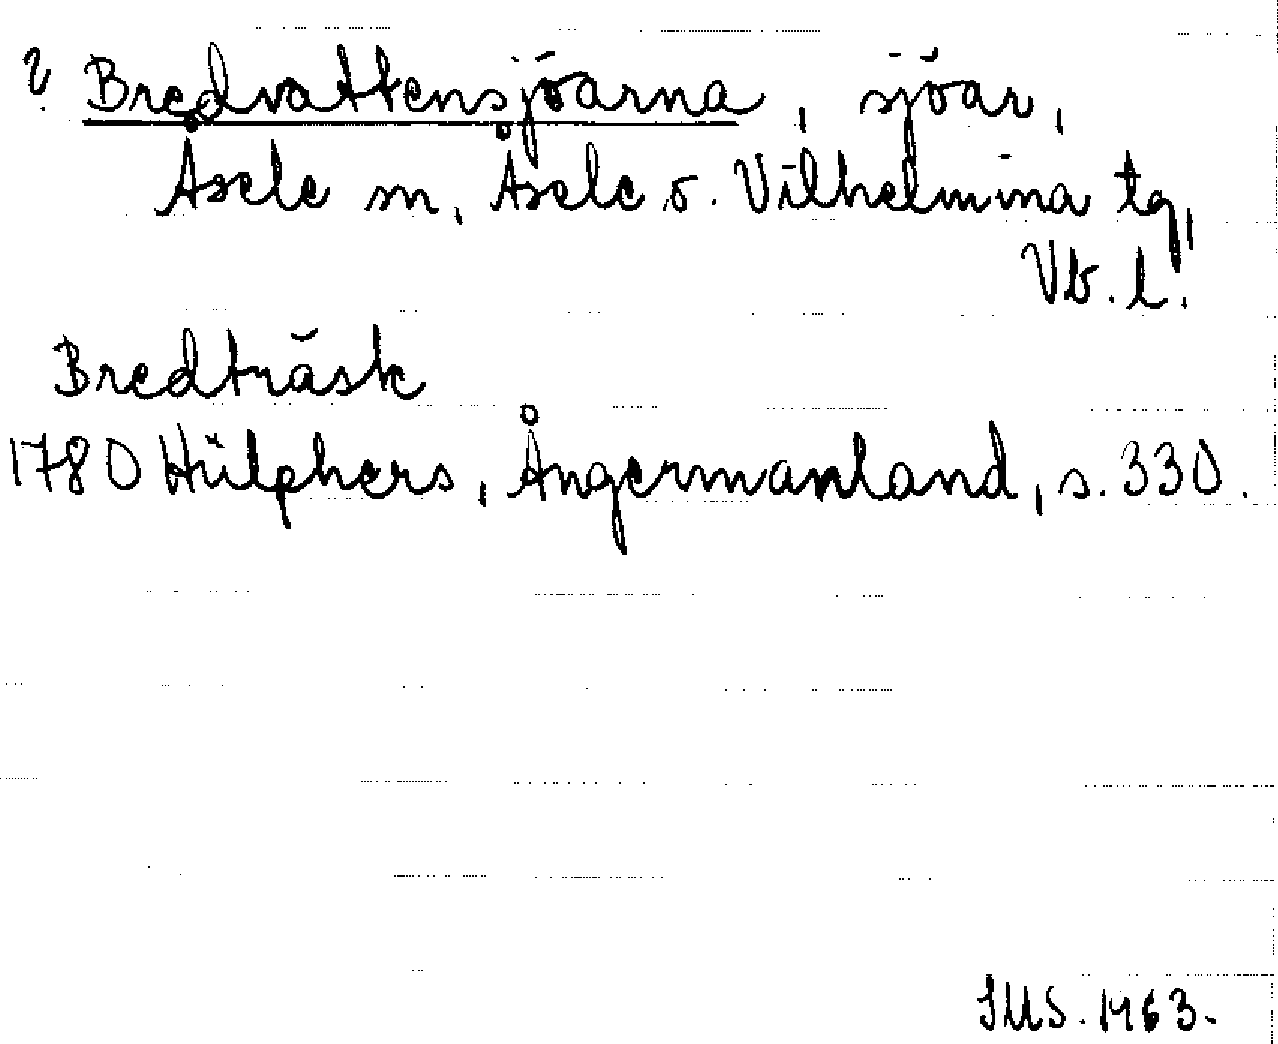 ? Bredvattensjöarna, sjöar,
Åsele sn, Åsele o. Vilhelmina tg,
Vb. l.
Bredträsk
1780 Hülphers, Ångermanland, s. 330.
SUS. 1963.